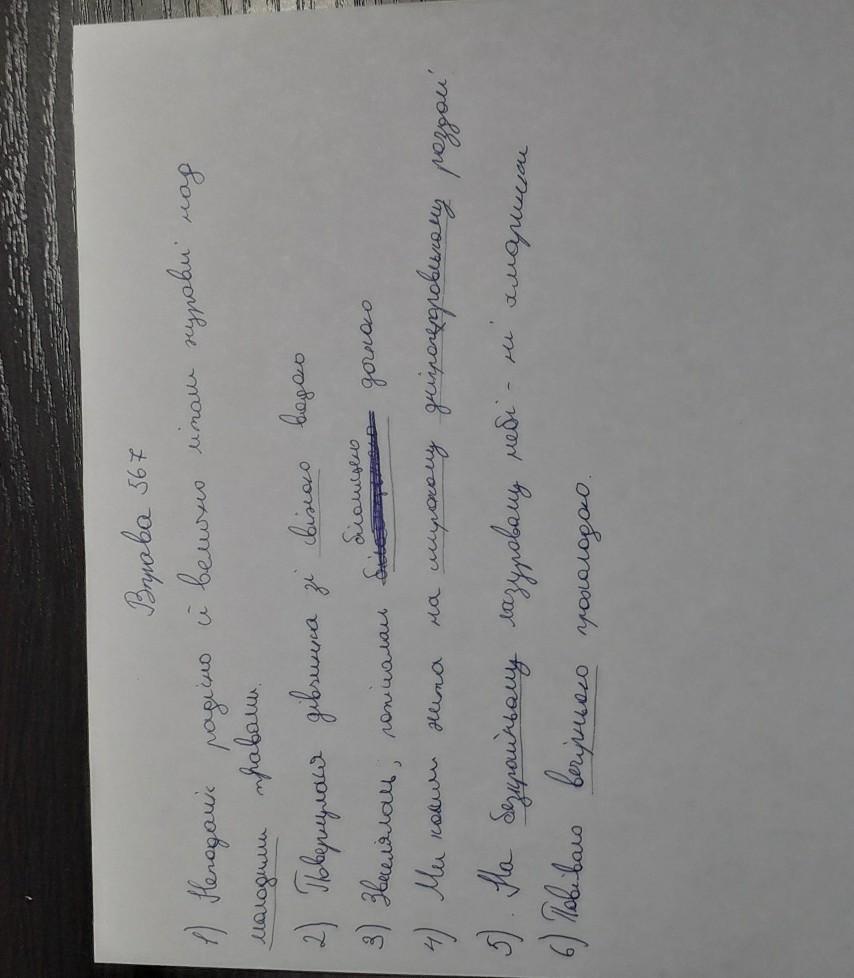 Вправа 567
1) Неподалік радісно й велично літали журавлі над
молодими травами.
2) Повернулася дівчинка зі свіжою водою
білолицею
3) Звеселялась, дочкою
4) Ми косили жита на широкому дніпропетровському роздолі
5). На безкрайньому лазуровому небі - ні хмаринки
6) Повівало вечірньою прохолодою.